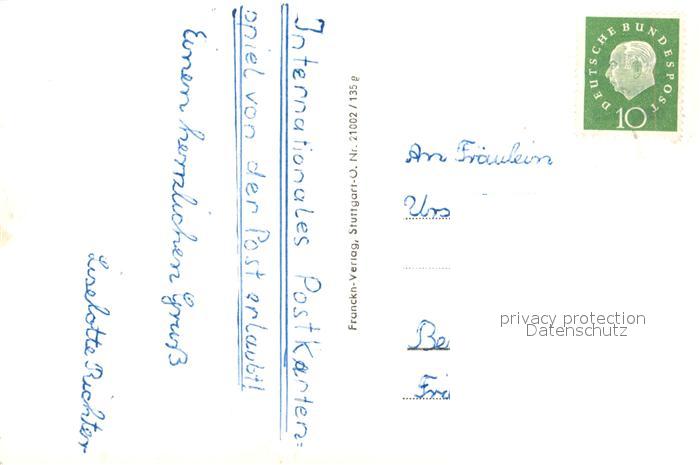 Internationales Postkarten=
spiel von der Post erlaubt!
Einen herzlichen Gruß
Liselotte Richter
Franckh-Verlag, Stuttgart-O. Nr. 21002 / 135 g
DEUTSCHE BUNDESPOST
10
An Fräulein
Urs
Be
Fri
privacy protection
Datenschutz